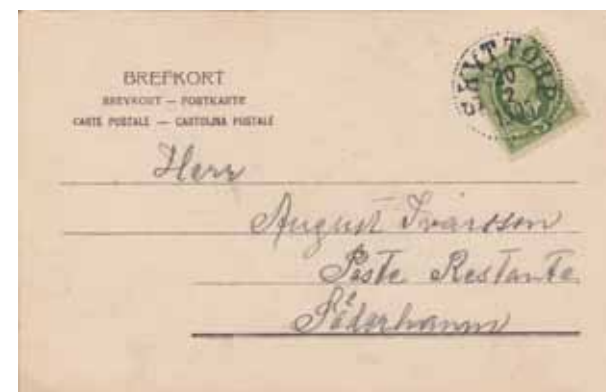 BREFKORT
BREVKORT — POSTKARTE
CARTE POSTALE — CARTOLINA POSTALE
SKYTTORP
20
2
Herr
August Ivarsson
Poste Restante
Söderhamn